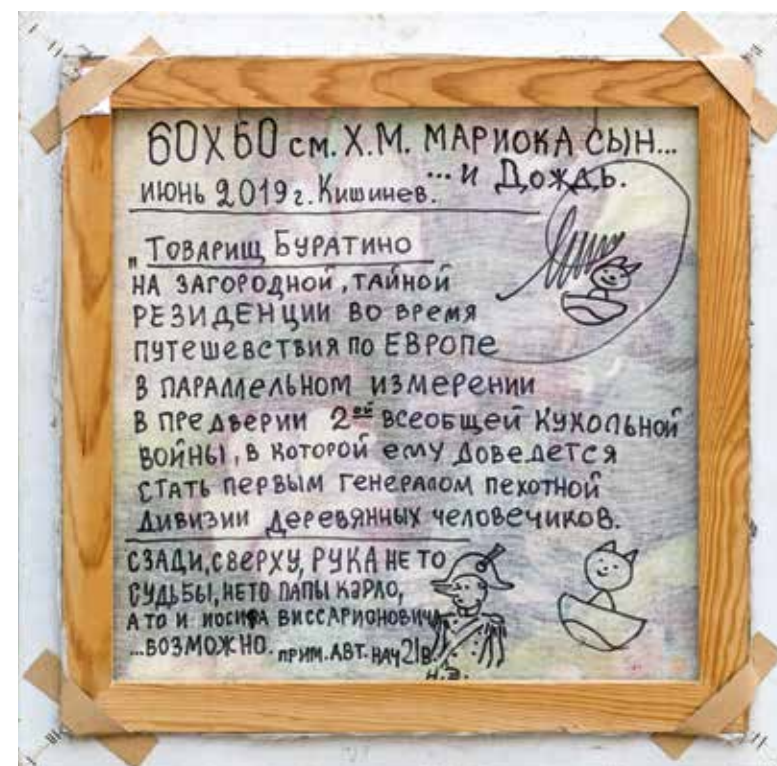 60X60 см. Х.М. МАРИОКА СЫН...
...и Дождь.
июнь 2019 г. Кишинев.
„Товарищ БУРАТИНО
НА ЗАГОРОДНОЙ, ТАЙНОЙ
РЕЗИДЕНЦИИ ВО ВРЕМЯ
ПУТЕШЕВСТВИЯ ПО ЕВРОПЕ
В ПАРАЛЛЕЛЬНОМ ИЗМЕРЕНИИ
В ПРЕДВЕРИИ 2ой ВСЕОБЩЕЙ КУКОЛЬНОЙ
ВОЙНЫ, В КОТОРОЙ ЕМУ ДОВЕДЕТСЯ
СТАТЬ ПЕРВЫМ ГЕНЕРАЛОМ ПЕХОТНОЙ
ДИВИЗИИ ДЕРЕВЯННЫХ ЧЕЛОВЕЧИКОВ.
СЗАДИ, СВЕРХУ, РУКА НЕ ТО
СУДЬБЫ, НЕТО ПАПЫ КАРЛО,
А ТО И ИОСИФА ВИССАРИОНОВИЧА
...ВОЗМОЖНО. ПРИМ. АВТ. НАЧ 21 В.
Н.Э.